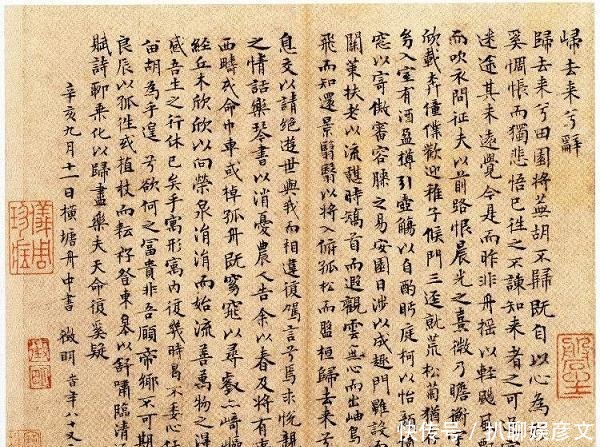 歸去来兮辭
歸去来兮田園将蕪胡不歸既自以心為
奚惆悵而獨悲悟已往之不諫知来者之可
迷途其未遠覺今是而昨非舟摇以輕颺
而吹衣問征夫以前路恨晨光之熹微乃瞻衡
欣載奔僮僕歡迎稚子候門三逕就荒松菊猶
幼入室有酒盈樽引壺觴以自酌眄庭柯以怡顔
窓以寄傲審容膝之易安園日涉以成趣門雖設而
關策扶老以流憩時矯首而遐觀雲無心而出岫鳥
飛而知還景翳翳以将入撫孤松而盤桓歸去来兮
息交以請絶遊世與我而相違復駕言兮焉求悦親
之情話樂琴書以消憂農人告余以春及将有事
西疇或命巾車或棹孤舟既窈窕以尋壑亦崎嶇
經丘木欣欣以向榮泉涓涓而始流善萬物之得
感吾生之行休已矣乎寓形寓内復幾時曷不委心任
留胡為乎遑兮欲何之富貴非吾願帝鄉不可期
良辰以孤往或植杖而耘耔登東皋以舒嘯臨清
賦詩聊乘化以歸盡樂夫天命復奚疑
辛亥九月十一日横塘舟中書 徵明 年八十又
快传号/扒聊娱彦文